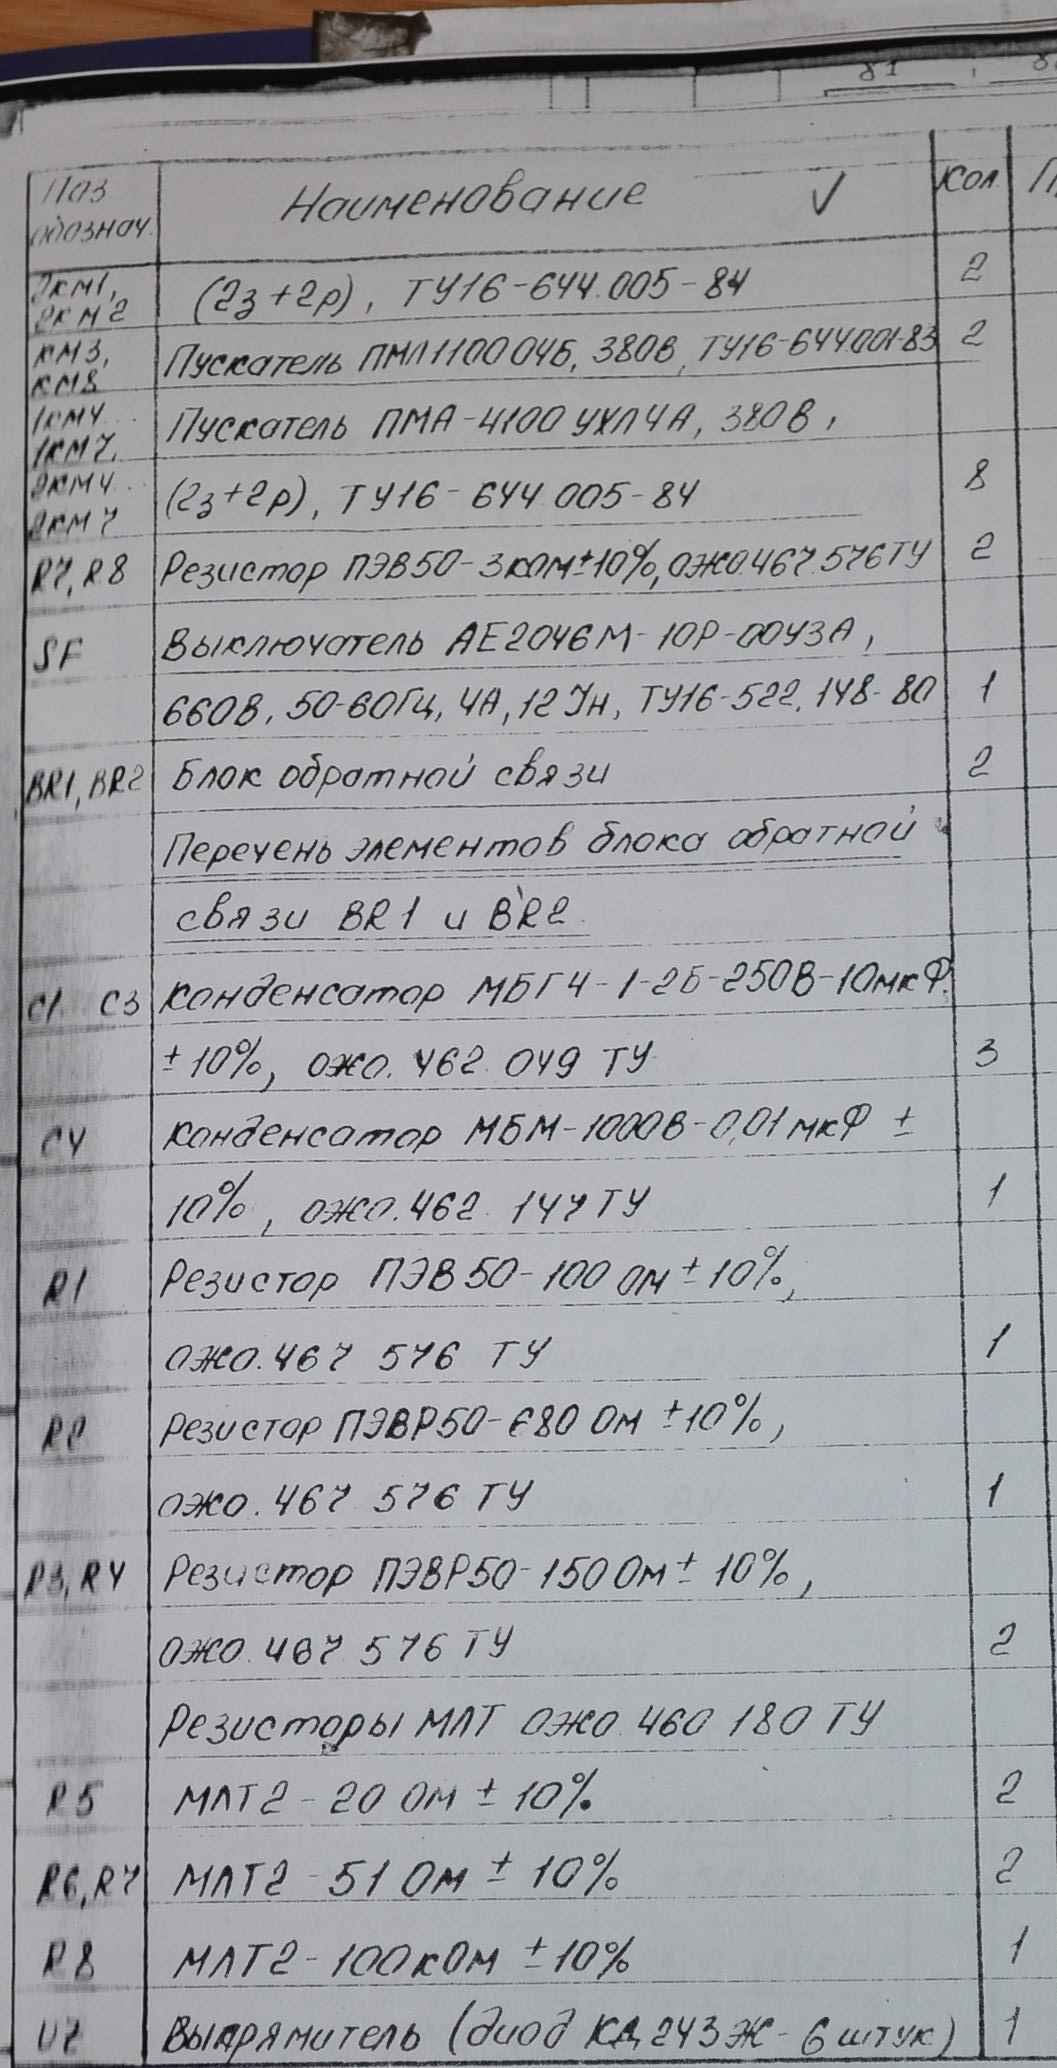 81
Поз
обознач.
Наименование
Кол
2КМ1,
2КМ2
(2з+2р), ТУ16-644.005-84
2
КМ3,
КМ8
Пускатель ПМЛ1100 04Б, 380В, ТУ16-644001-83
2
1КМ4...
1КМ7,
Пускатель ПМА-4100 УХЛ4А, 380В,
2КМ4...
2КМ7
(2з+2р), ТУ16-644.005-84
8
R7, R8
Резистор ПЭВ50-3кОм±10%, ОЖ0.467.576ТУ
2
SF
Выключатель АЕ2046М-10Р-00У3А,
660В, 50-60Гц, 4А, 12Iн, ТУ16-522.148-80
1
BR1, BR2
Блок обратной связи
2
Перечень элементов блока обратной
связи BR1 и BR2
C1 C3
Конденсатор МБГЧ-1-2Б-250В-10мкФ
±10%, ОЖ0.462.049 ТУ
3
C4
Конденсатор МБМ-1000В-0,01мкФ ±
10%, ОЖ0.462.147ТУ
1
R1
Резистор ПЭВ50-100 Ом ±10%,
ОЖ0.467 576 ТУ
1
R2
Резистор ПЭВР50-680 Ом ±10%,
ОЖ0.467 576 ТУ
1
R3, R4
Резистор ПЭВР50-150 Ом ± 10%,
ОЖ0.467 576 ТУ
2
Резисторы МЛТ ОЖ0.460 180 ТУ
R5
МЛТ2-20 Ом ± 10%
2
R6, R7
МЛТ2-51 Ом ± 10%
2
R8
МЛТ2-100кОм ±10%
1
UZ
Выпрямитель (диод КД243Ж-6 штук)
1